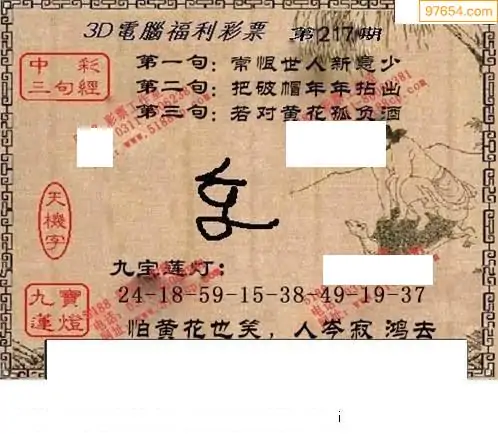 97654.com
3D電腦福利彩票 第217期
中彩
三句經
第一句：常恨世人新意少
第二句：把破帽年年拈出
第三句：若对黄花孤负酒
天機字
九宝莲灯：
24-18-59-15-38-49-19-37
九寶蓮燈
怕黄花也笑，人岑寂 鸿去
i